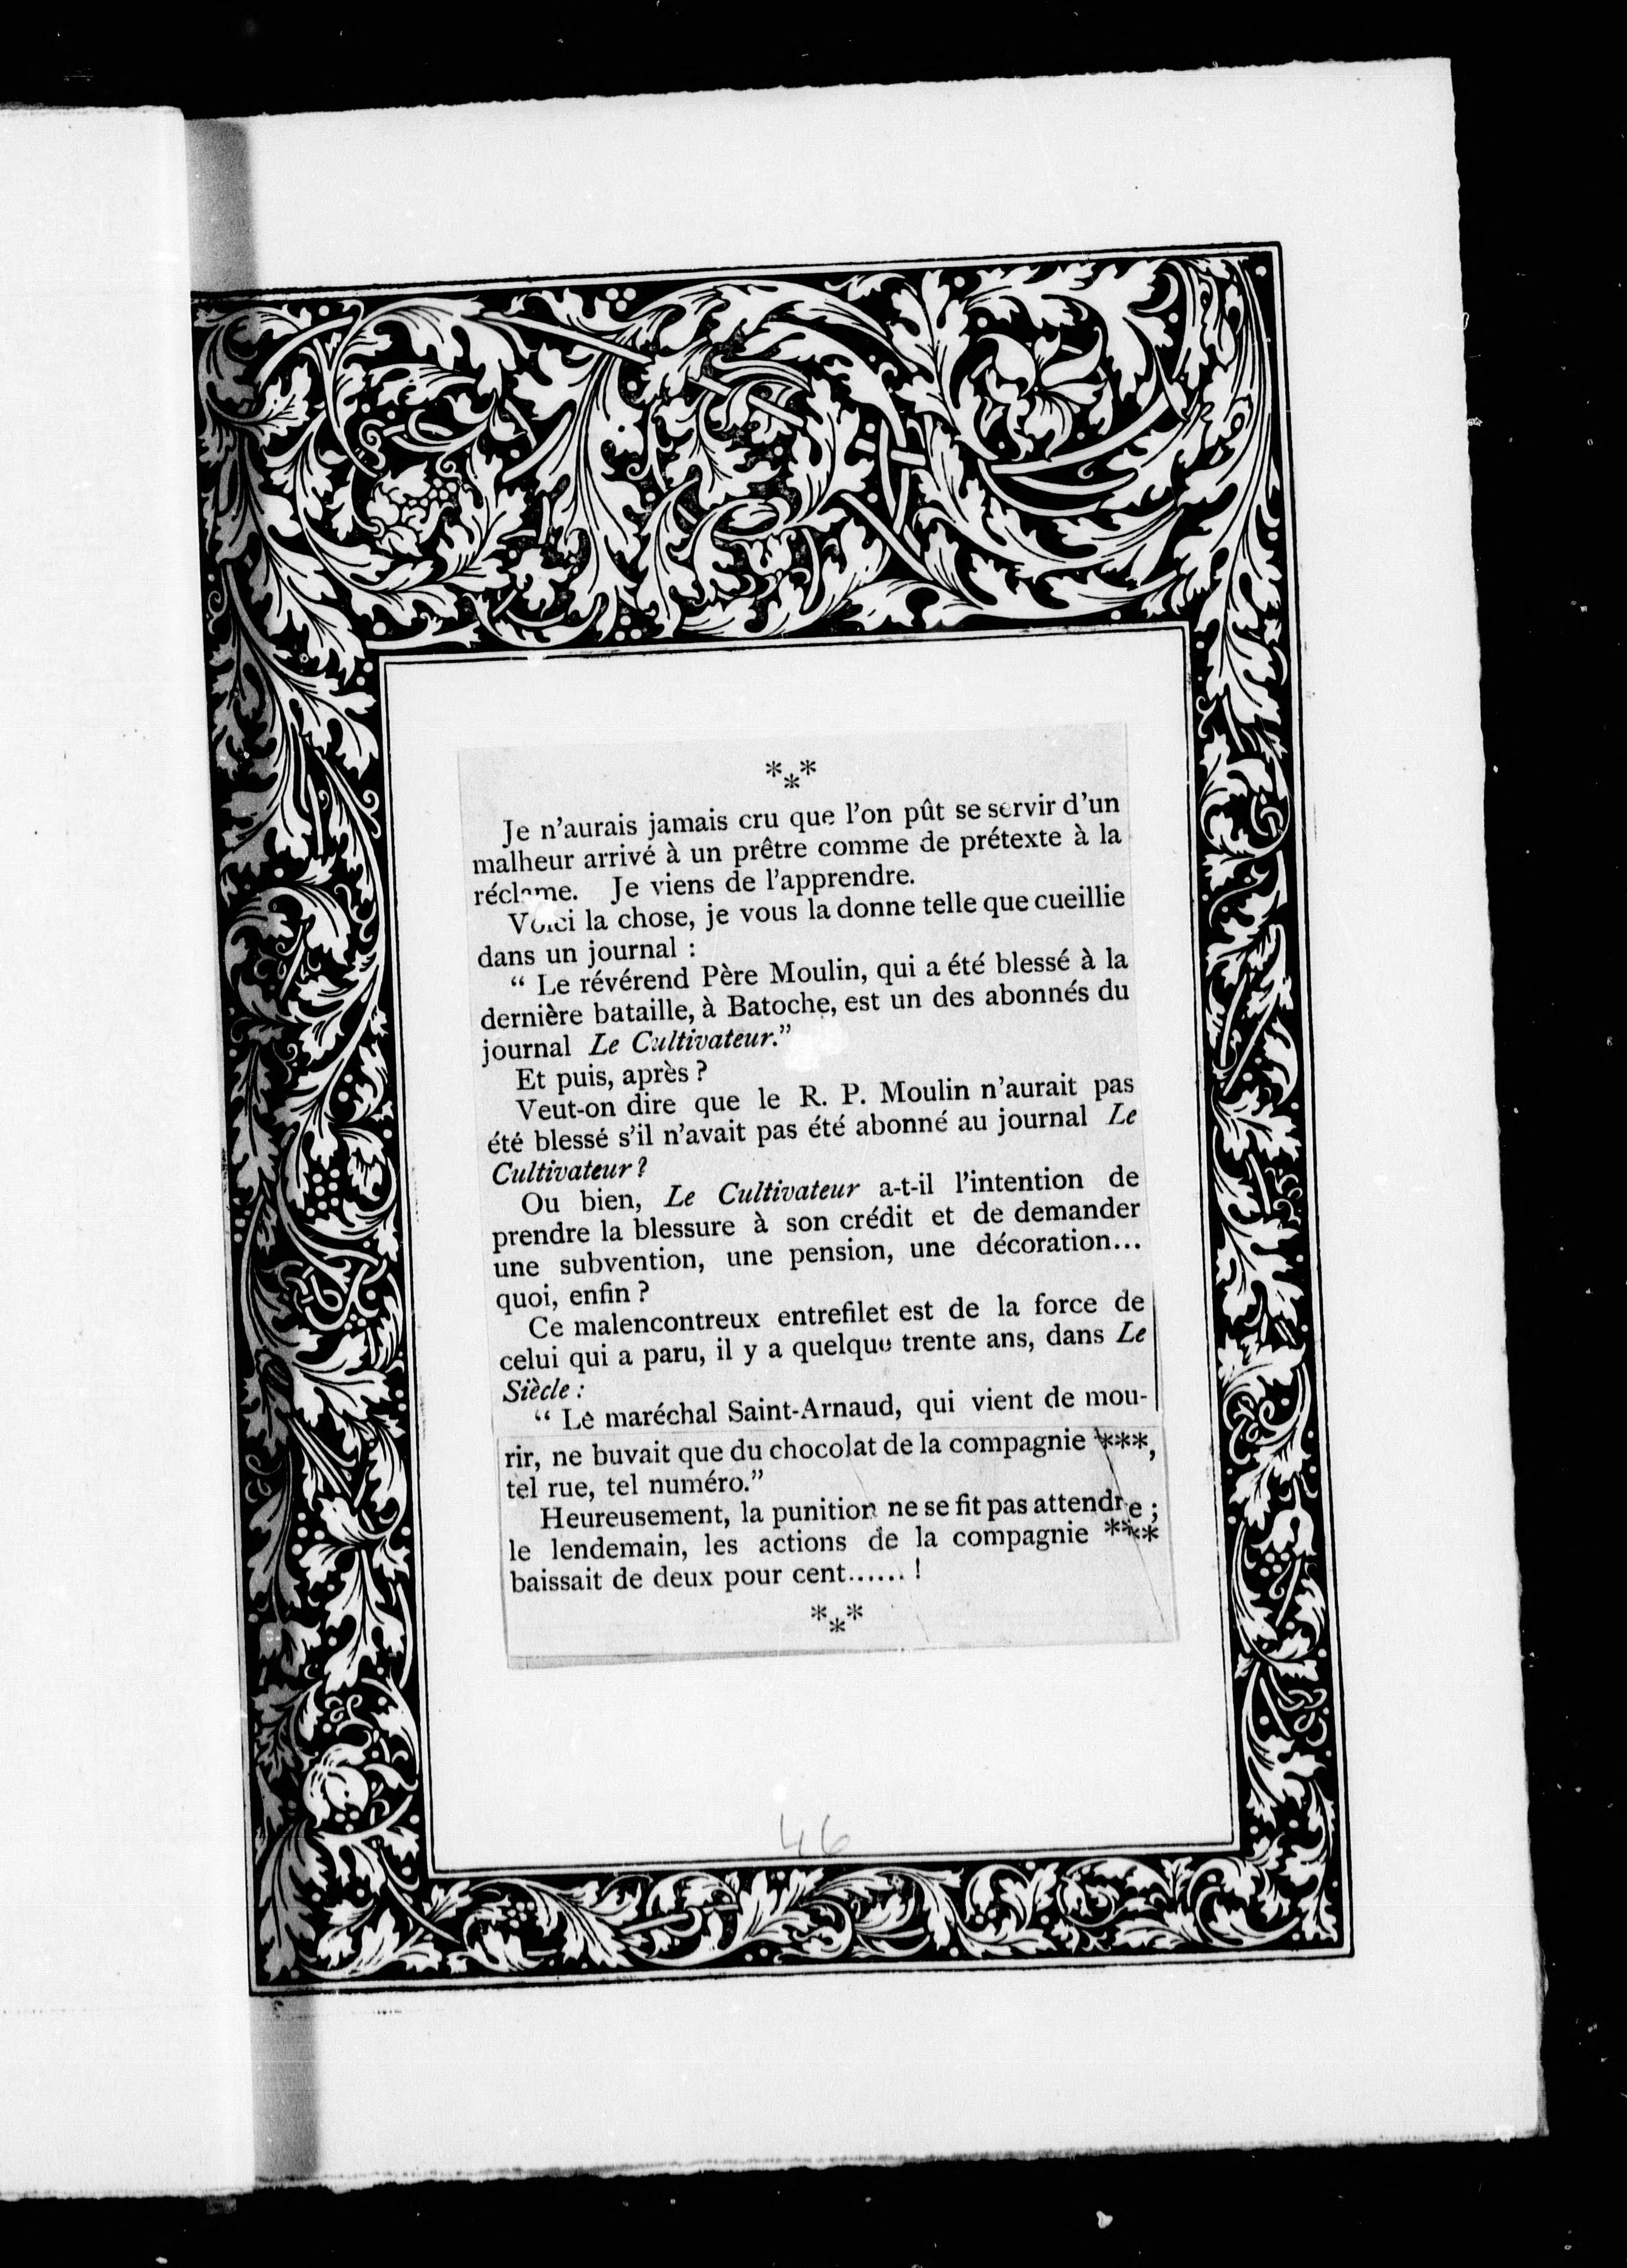 ***
Je n'aurais jamais cru que l'on pût se servir d'un
malheur arrivé à un prêtre comme de prétexte à la
réclame. Je viens de l'apprendre.
Voici la chose, je vous la donne telle que cueillie
dans un journal :
“ Le révérend Père Moulin, qui a été blessé à la
dernière bataille, à Batoche, est un des abonnés du
journal Le Cultivateur.”
Et puis, après ?
Veut-on dire que le R. P. Moulin n'aurait pas
été blessé s'il n'avait pas été abonné au journal Le
Cultivateur ?
Ou bien, Le Cultivateur a-t-il l'intention de
prendre la blessure à son crédit et de demander
une subvention, une pension, une décoration...
quoi, enfin ?
Ce malencontreux entrefilet est de la force de
celui qui a paru, il y a quelque trente ans, dans Le
Siècle :
“ Le maréchal Saint-Arnaud, qui vient de mou-
rir, ne buvait que du chocolat de la compagnie ***,
tel rue, tel numéro.”
Heureusement, la punition ne se fit pas attendre ;
le lendemain, les actions de la compagnie ***
baissait de deux pour cent...... !
***
46